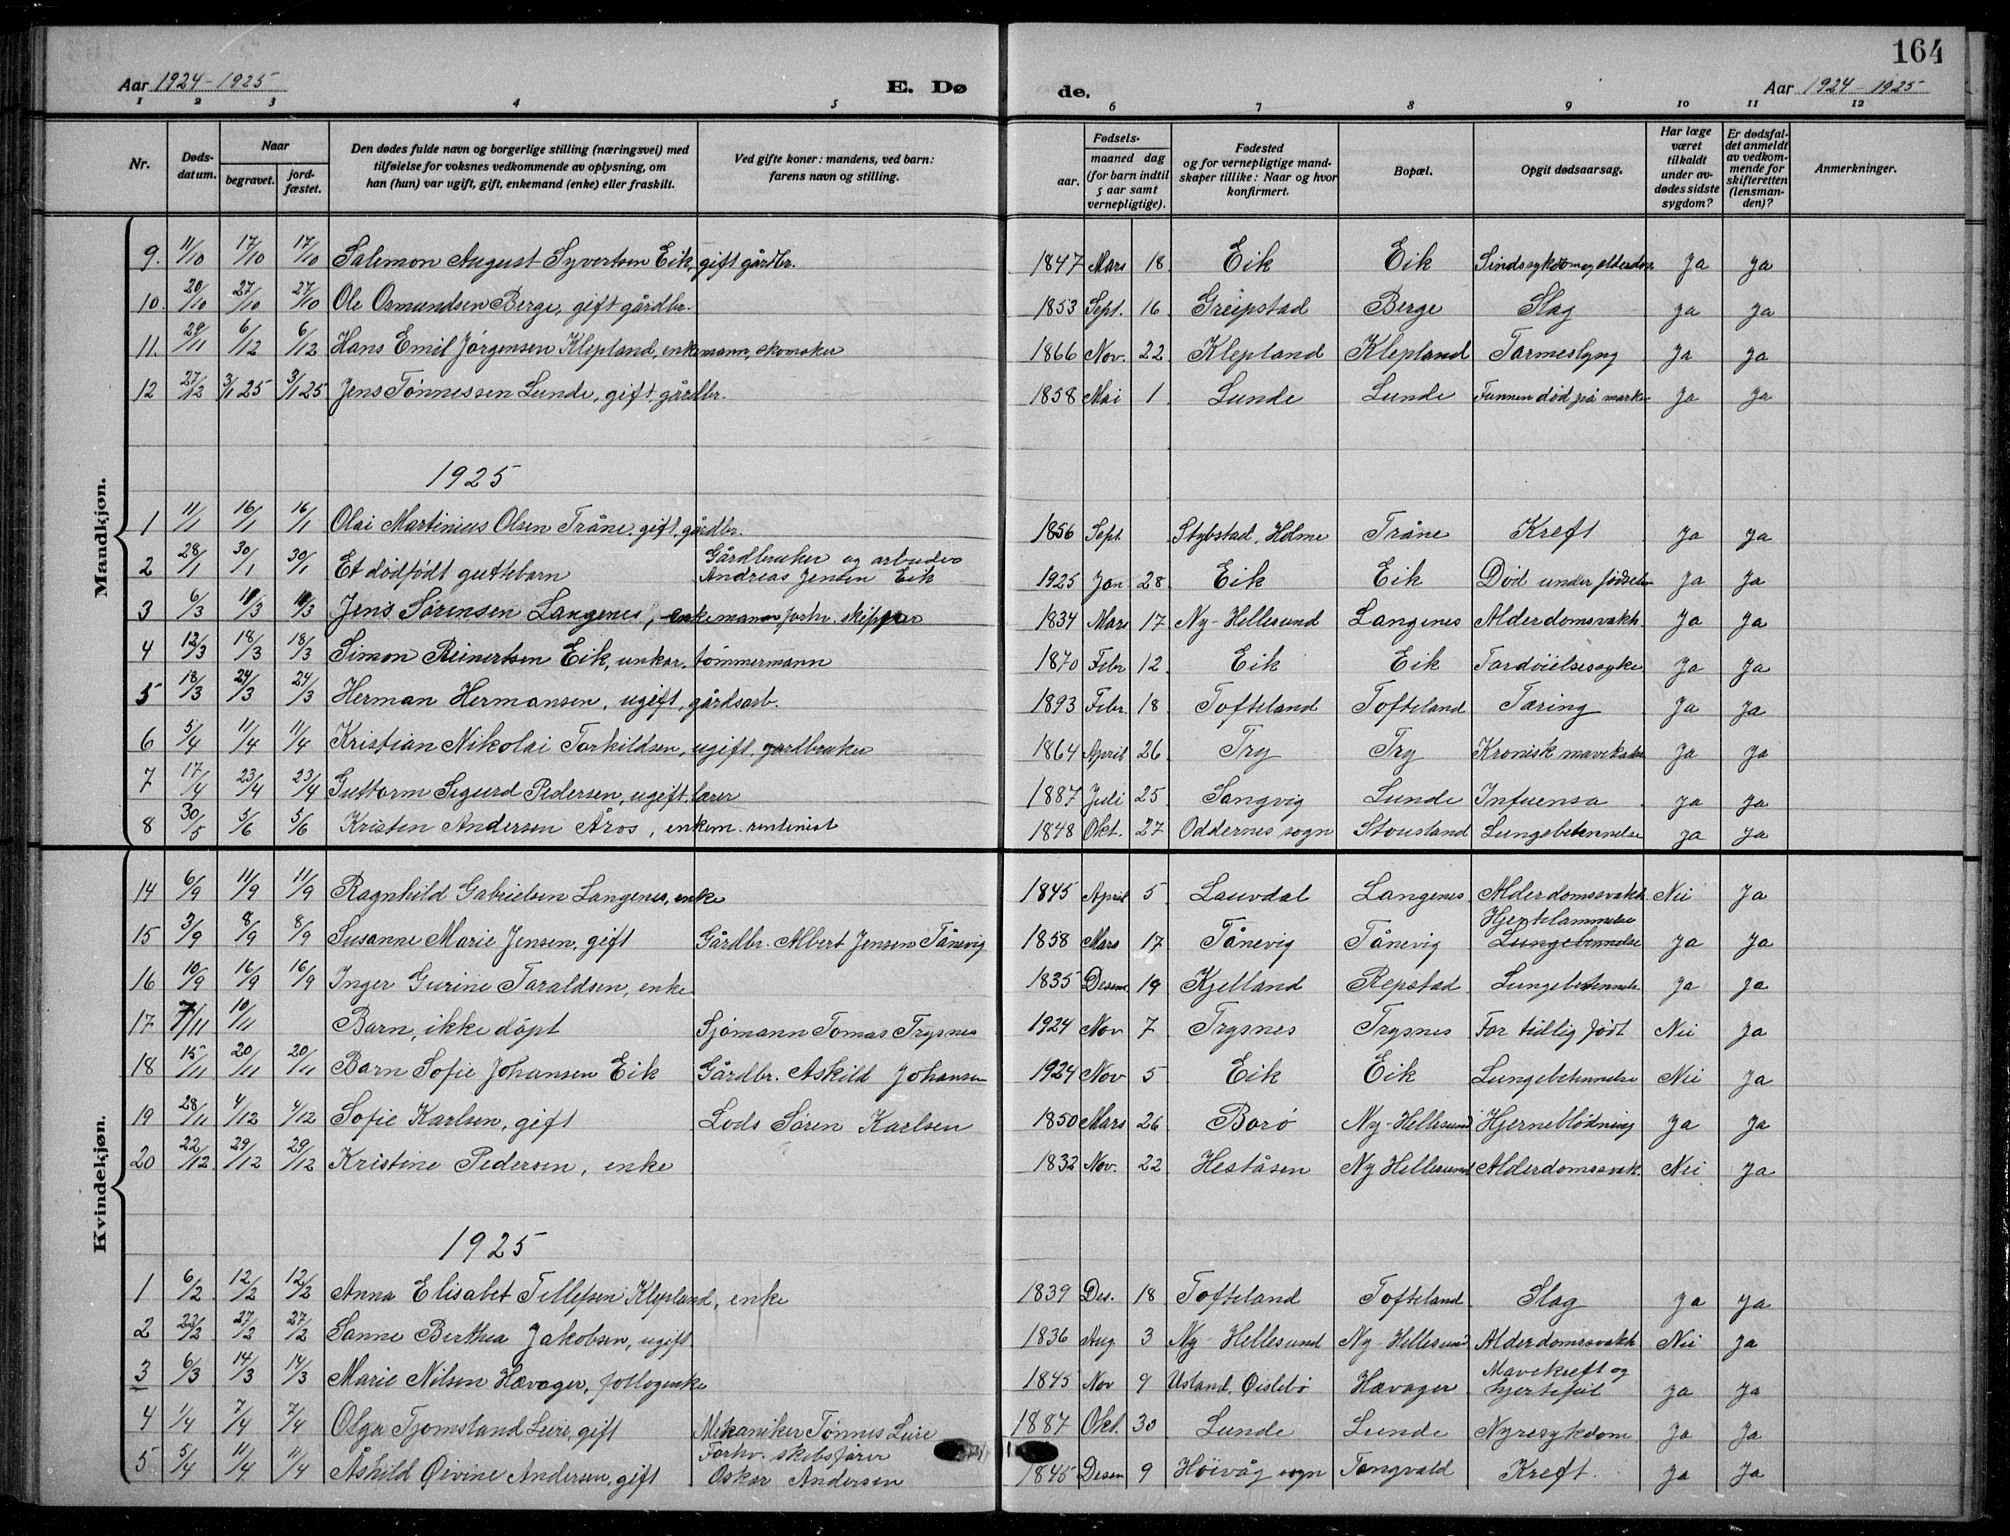 164
Aar 1924-1925 E. Dø de. Aar 1924-1925
1 2 3 4 5 6 7 8 9 10 11 12
Nr. Døds-datum. Naar begravet. jord-fæstet. Den dødes fulde navn og borgerlige stilling (næringsvei) med tilføielse for voksnes vedkommende av oplysning, om han (hun) var ugift, gift, enkemand (enke) eller fraskilt. Ved gifte koner: mandens, ved barn: farens navn og stilling. Fødsels- aar. maaned dag (for barn indtil 5 aar samt vernepligtige). Fødested og for vernepligtige mand-skaper tillike: Naar og hvor konfirmert. Bopæl. Opgit dødsaarsag. Har læge været tilkaldt under av-dødes sidste sygdom? Er dødsfal-det anmeldt av vedkom-mende for skifteretten (lensman-den)? Anmerkninger.
Mandkjøn.
9. 11/10 17/10 17/10 Salemon August Syvertsen Eik, gift gårdbr. 1847 Mars 18 Eik Eik Sindssykdom og alderdom Ja Ja
10. 20/10 27/10 27/10 Ole Osmundsen Berge, gift gårdbr. 1853 Sept. 16 Greipstad Berge Slag Ja Ja
11. 29/11 6/12 6/12 Hans Emil Jørgensen Klepland, enkemann, skomaker 1866 Nov. 22 Klepland Klepland Tarmeslyng Ja Ja
12 27/12 3/1 25 3/1 25 Jens Tønnessen Lunde, gift gårdbr. 1858 Mai 1 Lunde Lunde Funnen død på marken Ja Ja
1925
1 11/1 16/1 16/1 Olai Martinius Olsen Tråne, gift, gårdbr. 1856 Sept. Stubstad, Holme Tråne Kreft Ja Ja
2 28/1 30/1 30/1 Et dødfødt guttebarn Gårdbruker og arbeider Andreas Jensen Eik 1925 Jan 28 Eik Eik Død under fødselen Ja Ja
3 6/3 11/3 11/3 Jens Sørensen Langenes, enkemann forhv. skipper 1834 Mars 17 Ny-Hellesund Langenes Alderdomsvakh. Ja Ja
4 12/3 18/3 18/3 Simon Reinertsen Eik, unkar, tømmermann 1870 Febr 12 Eik Eik Fordøielsessyke Ja Ja
5 18/3 24/3 24/3 Herman Hermansen, ugift, gårdsarb. 1893 Febr. 18 Tofteland Tofteland Tæring Ja Ja
6 5/4 11/4 11/4 Kristian Nikolai Torkildsen, ugift, gardbruker 1864 April 26 Try Try Kronisk mavekatar Ja Ja
7 17/4 23/4 23/4 Guttorm Sigurd Pedersen, ugift, lærer 1887 Juli 25 Sangvig Lunde Infuensa Ja Ja
8 30/5 5/6 5/6 Kristen Andersen Åros, enkem. rentenist 1848 Okt. 27 Oddernes sogn Stousland Lungebetennelse Ja Ja
Kvindekjøn.
14 6/9 11/9 11/9 Ragnhild Gabrielsen Langenes, enke 1845 April 5 Lauvdal Langenes Alderdomssvakh Nei Ja
15 3/9 8/9 8/9 Susanne Marie Jensen, gift Gårdbr. Albert Jensen Tånevig 1858 Mars 17 Tånevig Tånevig Hjertelammelse Lungebennelse Ja Ja
16 10/9 16/9 16/9 Inger Gurine Taraldsen, enke 1835 Desem 19 Kjelland Repstad Lungebetennelse Ja Ja
17 7/11 10/11 Barn, ikke døpt Sjømann Tomas Trysnes 1924 Nov 7 Trysnes Trysnes For tidlig født Nei Ja
18 15/11 20/11 20/11 Barn Sofie Johansen Eik Gårdbr. Askild Johansen 1924 Nov 5 Eik Eik Lungebetennelse Nei Ja
19 28/11 4/12 4/12 Sofie Karlsen, gift Lods Søren Karlsen 1850 Mars 26 Borø Ny-Hellesund Hjerneblødning Ja Ja
20 22/12 29/12 29/12 Kristine Pedersen, enke 1832 Nov. 22 Heståsen Ny Hellesund Alderdomssvak. Nei Ja
1925
1 6/2 12/2 12/2 Anna Elisabet Tellefsen Klepland, enke 1839 Des. 18 Tofteland Tofteland Slag Ja Ja
2 22/2 27/2 27/2 Sanne Berthea Jakobsen, ugift. 1836 Aug. 3 Ny-Hellesund Ny-Hellesund Alderdomssvakh Nei Ja
3 6/3 14/3 14/3 Marie Nilsen Hævager, follogenke 1845 Nov 9 Usland, Øislebø Hævager Mavekreft og hjertefeil Ja Ja
4 1/4 7/4 7/4 Olga Tjomsland Leire, gift Mekaniker Tønnes Leire 1887 Okt. 30 Lunde Lunde Nyresykdom Ja Ja
5 5/4 11/4 11/4 Åshild Øivine Andersen, gift Forhv. skibsfører Oskar Andersen 1845 Desem 9 Høivåg sogn Tangvald Kreft. Ja Ja